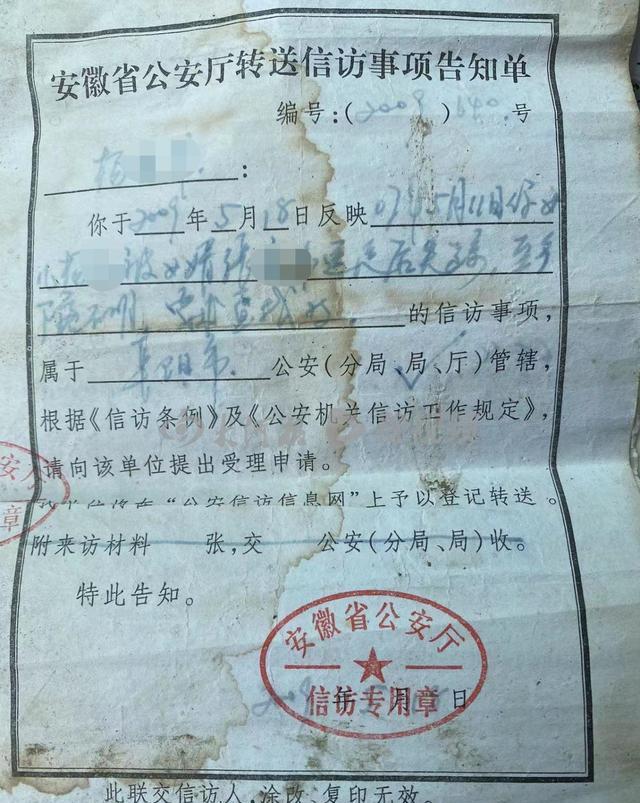 安徽省公安厅转送信访事项告知单
编号:(2009)640号
:
你于2009年5月18日反映07年5月11日你女
儿被女婿张后失踪,至今
下落不明,要求查找的信访事项,
属于阜阳市公安(分局、局、厅)管辖,
根据《信访条例》及《公安机关信访工作规定》,
请向该单位提出受理申请。
“公安信访信息网”上予以登记转送。
附来访材料 张,交 公安(分局、局)收。
特此告知。
安徽省公安厅
信访专用章
2009年 月 日
此联交信访人,涂改、复印无效。
公安厅
章